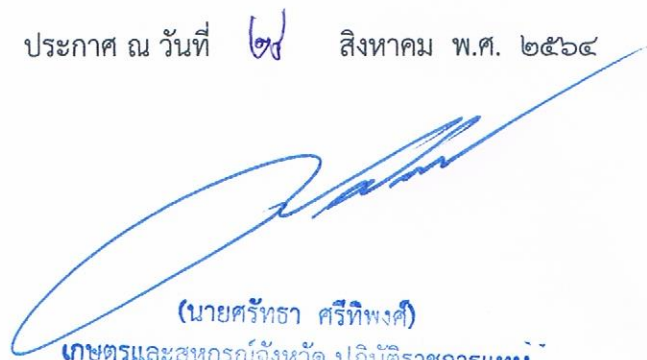 ประกาศ ณ วันที่ ๒๔ สิงหาคม พ.ศ. ๒๕๖๔
(นายศรัทธา ศรีทิพงศ์)
เกษตรและสหกรณ์จังหวัด ปฏิบัติราชการแทน